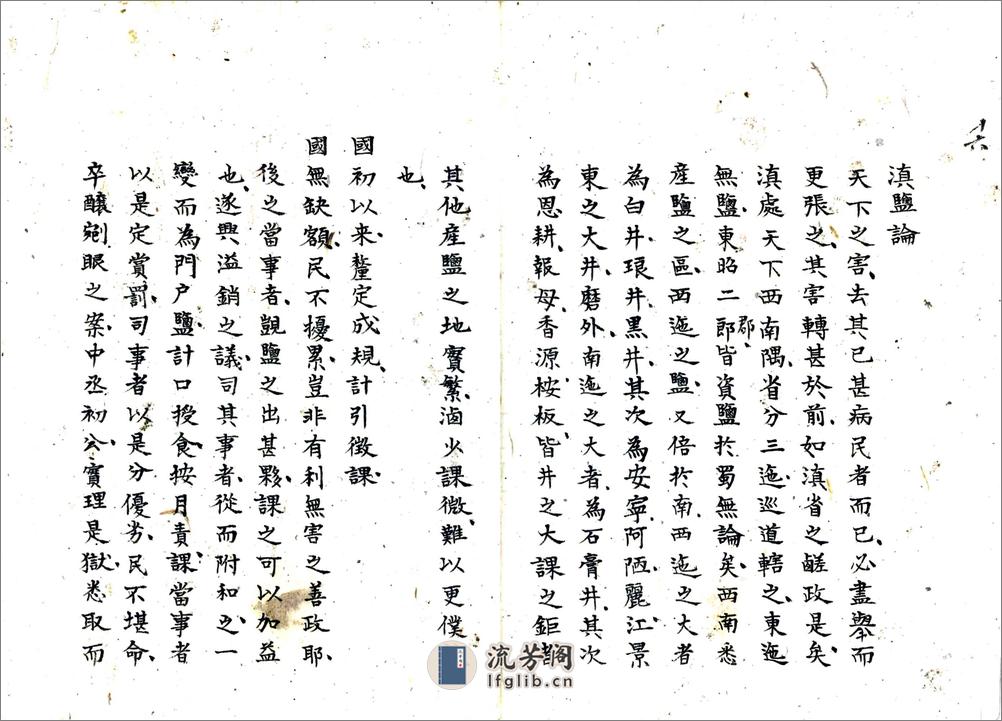 十六
滇鹽論
天下之害、去其已甚病民者而已、必盡舉而
更張之、其害轉甚於前、如滇省之鹾政是矣、
滇處天下西南隅、省分三迤、巡道轄之、東迤
無鹽、東昭二郎郡、皆資鹽於蜀、無論矣、西南悉
產鹽之區、西迤之鹽、又倍於南、西迤之大者
為白井、琅井、黑井、其次為安寧、阿陋、麗江、景
東之大井、磨外、南迤之大者、為石膏井、其次
為恩耕、報母、香源、桉板、皆井之大課之鉅者
其他產鹽之地寔繁、滷少課微、難以更僕
也、
國初以來、釐定成規、計引徵課、
國無缺額、民不擾累、豈非有利無害之善政耶、
後之當事者、覩鹽之出甚夥、課之可以加益
也、遂興溢銷之議、司其事者、從而附和之、一
變而為門户鹽、計口授食、按月責課、當事者
以是定賞罰、司事者以是分優劣、民不堪命、
卒釀剜眼之案、中丞初公、寔理是獄、悉取而
流芳閣
lfglib.cn